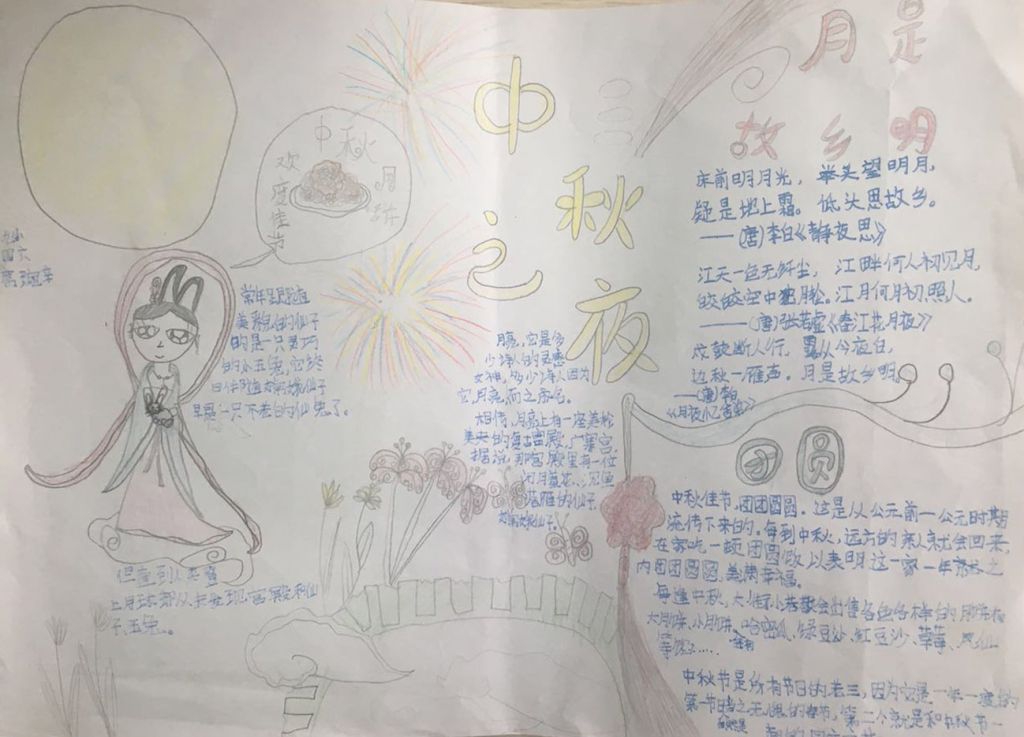 中秋之夜
月是
故乡明
中秋
月饼
欢度佳节
床前明月光，举头望明月，
疑是地上霜。低头思故乡。
——(唐)李白《静夜思》
江天一色无纤尘，江畔何人初见月，
皎皎空中孤月轮。江月何月初照人。
——(唐)张若虚《春江花月夜》
戍鼓断人行，露从今夜白，
边秋一雁声。月是故乡明。
常年
美丽的仙子
的是一只灵巧
的小玉兔，它终
日伴随
早是一只不老的仙兔了。
月亮，它是多
少诗人的灵感
女神，多少诗人因为
它，月亮，而之
相传，月亮上有一座美轮
美奂的复古宫殿，广寒宫，
据说，那宫殿里有一位
闭月羞花、沉鱼
落雁的仙子
但直到人类登
上月球都从未发现宫殿和仙
子、玉兔。
团圆
中秋佳节，团团圆圆。这是从公元前一公元时期
流传下来的。每到中秋，远方的亲人就会回来，
在家吃一顿团圆饭以表明这一家一年
内团团圆圆，美满幸福。
每逢中秋，大小都会出售各色各样的月饼
大月饼、小月饼、哈密瓜、绿豆沙、红豆沙、草莓、凤仙
等馅……
中秋节是所有节日的老三，因为它是一年一度的
第一节当之无愧的春节，第二个就是和中秋节一